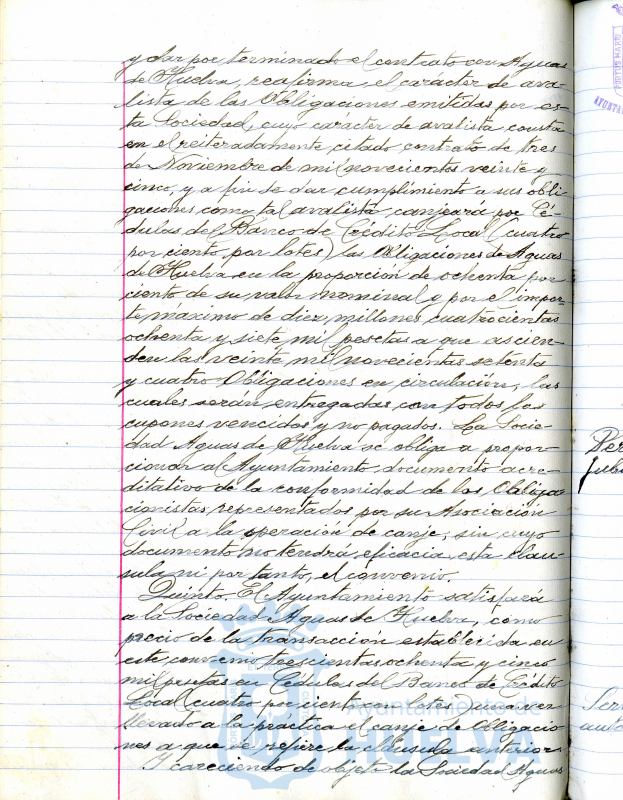 y dar por terminado el contrato con Aguas
de Huelva, reafirma, el carácter de ava-
lista de las Obligaciones emitidas por es-
ta Sociedad, cuyo carácter de avalista consta
en el reiteradamente citado contrato de tres
de Noviembre de mil novecientos veinte y
cinco, y a fin de dar cumplimiento a sus obli-
gaciones como tal avalista canjeará por Cé-
dulas del Banco de Crédito Local (cuatro
por ciento, por lotes) las Obligaciones de Aguas
de Huelva en la proporción de ochenta por
ciento de su valor nominal y por el impor-
te máximo de diez millones cuatrocientas
ochenta y siete mil pesetas a que ascien-
den las veinte mil novecientas setenta
y cuatro Obligaciones en circulación, las
cuales serán entregadas con todos los
cupones vencidos y no pagados. La Socie-
dad Aguas de Huelva se obliga a propor-
cionar al Ayuntamiento documento acre-
ditativo de la conformidad de los Obliga-
cionistas representados por su Asociación
Civil a la operación de canje, sin cuyo
documento no tendrá eficacia esta cláu-
sula ni por tanto, el convenio.
Quinto. El Ayuntamiento satisfará
a la Sociedad Aguas de Huelva, como
precio de la transacción establecida en
este convenio trescientas ochenta y cinco
mil pesetas en Cédulas del Banco de Crédito
Local (cuatro por ciento por lotes) una vez
llevado a la práctica el canje de Obligacio-
nes a que se refiere la cláusula anterior
Y careciendo de objeto la Sociedad Aguas
Ayuntamiento de
HUELVA